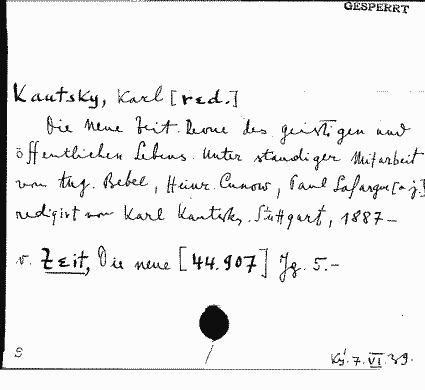 GESPERRT
Kautsky, Karl [red.]
Die neue Zeit. Revue des geistigen und
öffentlichen Lebens. Unter ständiger Mitarbeit
von Aug. Bebel, Heinr. Cunow, Paul Lafargue [a.j.]
redigirt von Karl Kautsky. Stuttgart, 1887-
v. Zeit, Die neue [44.907] Jg. 5.-
Ký. 7. VI. 39.